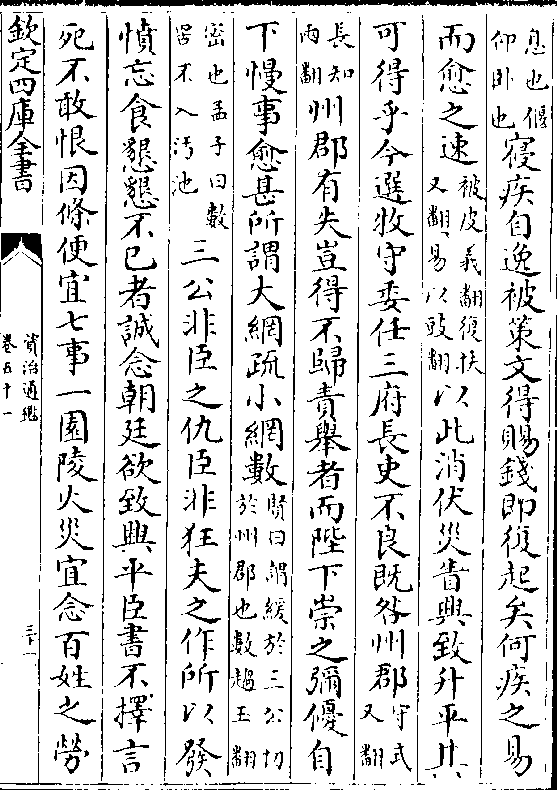 息也偃仰卧也寑疾自逸被策文得賜錢即復起矣何疾之易
而愈之速被皮義翻復扶又翻易以豉翻以此消伏災眚興致升平其
可得乎今選牧守委任三府長吏不良既咎州郡守式又翻
長知兩翻州郡有失豈得不歸責舉者而陛下崇之彌優自
下慢事愈甚所謂大網疏小網數賢曰謂緩於三公切於州郡也數趨玉翻
密也孟子曰數罟不入汚池三公非臣之仇臣非狂夫之作所以發
憤忘食懇懇不已者誠念朝廷欲致興平臣書不擇言
死不敢恨因條便宜七事一園陵火災宜念百姓之勞
欽定四庫全書
資治通鑑
卷五十一